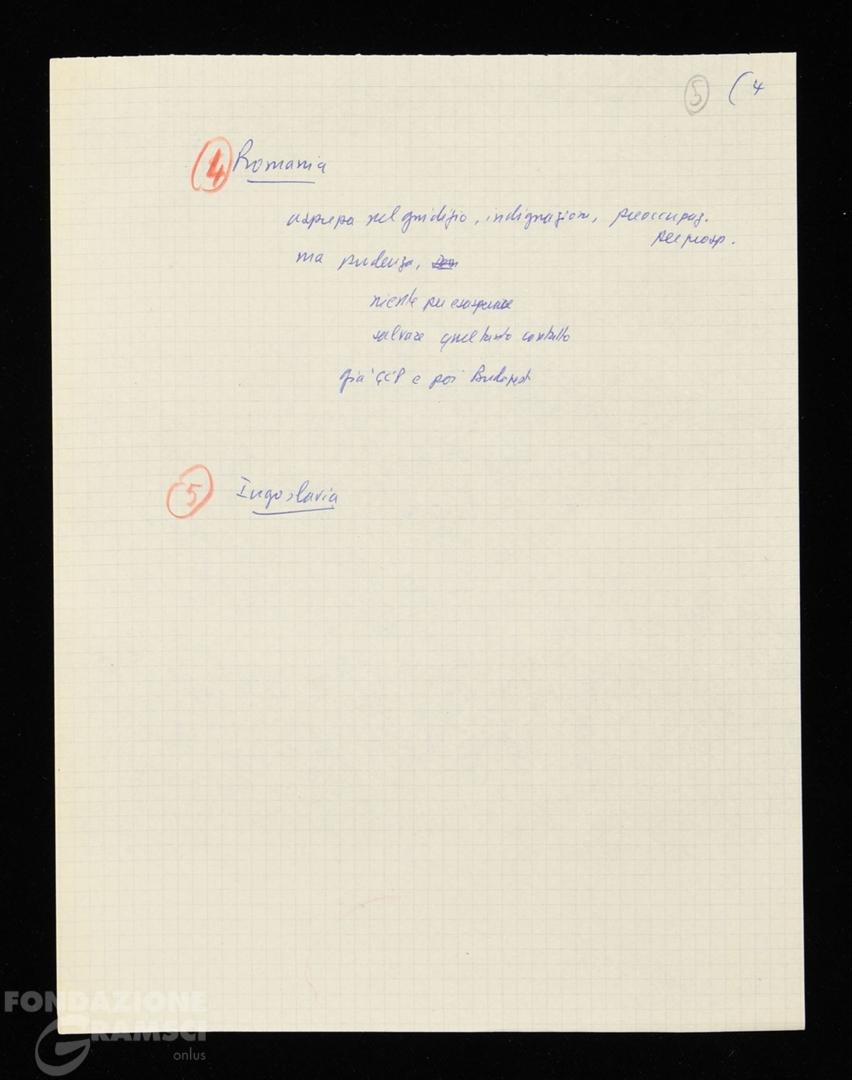 5 (4
4 Romania
asprezza nel giudizio, indignazione, preoccupaz.
per prosp.
ma prudenza,
niente per esasperare
salvare quel tanto
già e poi Budapest
5 Iugoslavia
FONDAZIONE
GRAMSCI
onlus